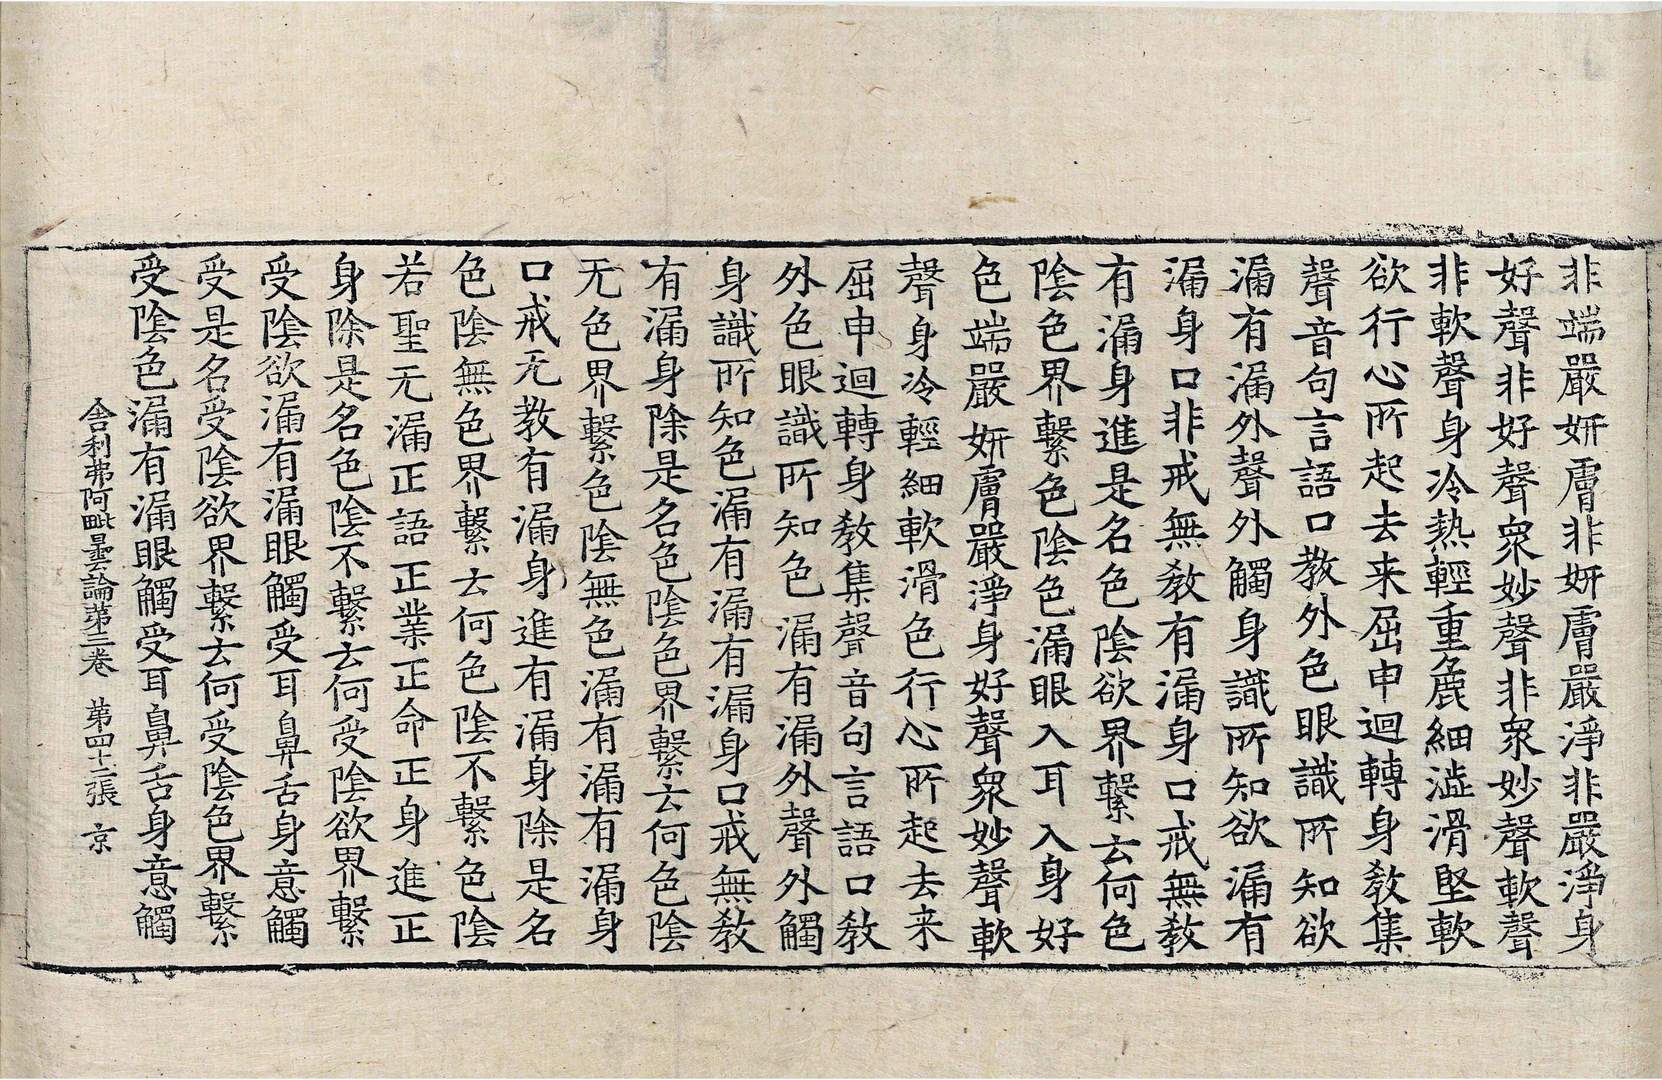 非端嚴妍膚非妍膚嚴淨非嚴淨身
好聲非好聲衆妙聲非衆妙聲軟聲
非軟聲身冷熱輕重麁細澁滑堅軟
欲行心所起去来屈申迴轉身教集
聲音句言語口教外色眼識所知欲
漏有漏外聲外觸身識所知欲漏有
漏身口非戒無教有漏身口戒無教
有漏身進是名色陰欲界繫云何色
陰色界繫色陰色漏眼入耳入身好
色端嚴妍膚嚴淨身好聲衆妙聲軟
聲身冷輕細軟滑色行心所起去来
屈申迴轉身教集聲音句言語口教
外色眼識所知色漏有漏外聲外觸
身識所知色漏有漏有漏身口戒無教
有漏身除是名色陰色界繫云何色陰
无色界繫色陰無色漏有漏有漏身
口戒无教有漏身進有漏身除是名
色陰無色界繫云何色陰不繫色陰
若聖无漏正語正業正命正身進正
身除是名色陰不繫云何受陰欲界繫
受陰欲漏有漏眼觸受耳鼻舌身意觸
受是名受陰欲界繫云何受陰色界繫
受陰色漏有漏眼觸受耳鼻舌身意觸
舍利弗阿毗曇論第三卷 第四十二張 京